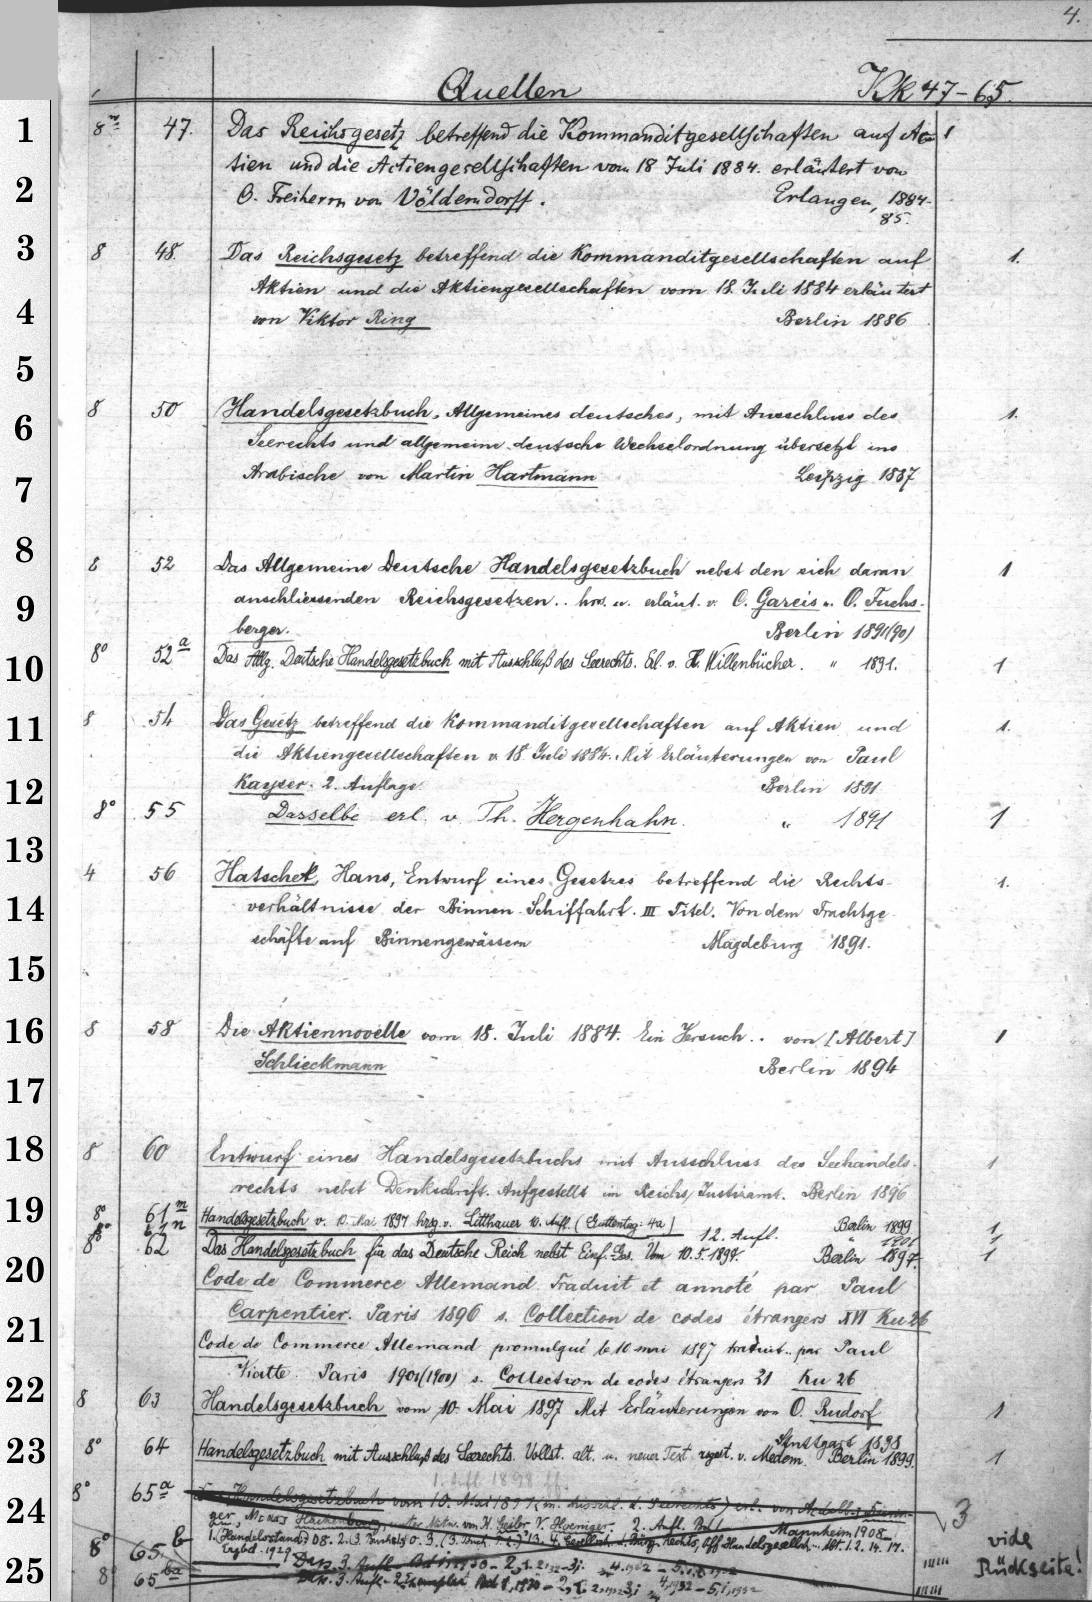 4.
Quellen Kk 47-65.
1
8° 47. Das Reichsgesetz betreffend die Kommanditgesellschaften auf Ac- 1
tien und die Actiengesellschaften vom 18 Juli 1884. erläutert von
2
O. Freiherrn von Völderndorff. Erlangen, 1884-
85.
3
8 48. Das Reichsgesetz betreffend die Kommanditgesellschaften auf 1.
Aktien und die Aktiengesellschaften vom 18. Juli 1884 erläutert
4
von Viktor Ring Berlin 1886
5
8 50 Handelsgesetzbuch, Allgemeines deutsches, mit Ausschluss des 1.
6
Seerechts und allgemeine deutsche Wechselordnung übersetzt ins
Arabische von Martin Hartmann Leipzig 1887
7
8
8 52 Das Allgemeine Deutsche Handelsgesetzbuch nebst den sich daran 1
anschliessenden Reichsgesetzen.. hrs. u. erläut. v. C. Gareis u. O. Fuchs-
9
berger. Berlin 1891(90)
8° 52a Das Allg. Deutsche Handelsgesetzbuch mit Ausschluß des Seerechts. Erl. v. H. Willenbücher. " 1891. 1
10
8 54 Das Gesetz betreffend die Kommanditgesellschaften auf Aktien und 1.
11
die Aktiengesellschaften v. 18 Juli 1884. Mit Erläuterungen von Paul
Kayser. 2. Auflage. Berlin 1891
12
8° 55 Dasselbe erl. v. Th. Hergenhahn. " 1891 1
13
4 56 Hatschek, Hans, Entwurf eines Gesetzes betreffend die Rechts- 1.
verhältnisse der Binnen-Schiffahrt. III Titel. Von dem Frachtge-
14
schäfte auf Binnengewässern Magdeburg 1891.
15
8 58 Die Aktiennovelle vom 18. Juli 1884. Ein Versuch.. von [Albert] 1
16
Schlieckmann Berlin 1894
17
18
8 60 Entwurf eines Handelsgesetzbuchs mit Ausschluss des Seehandels- 1
rechts nebst Denkschrift. Aufgestellt im Reichs-Justizamt. Berlin 1896
19
8° 61m Handelsgesetzbuch v. 10. Mai 1897 hrg. v. Litthauer 10. Aufl. (Guttentag: 4a) Berlin 1899 1
8° 61n 12. Aufl. " 1901 1
8° 62 Das Handelsgesetzbuch für das Deutsche Reich nebst Einf. Ges. Vom 10.5.1897. Berlin 1897. 1
20
Code de Commerce Allemand Traduit et annoté par Paul
Carpentier. Paris 1896 s. Collection de codes étrangers XVI Ku 26
21
Code de Commerce Allemand promulgué le 10 mai 1897 traduit.. par Paul
Viatte. Paris 1901(1900) s. Collection de codes étrangers 21 Ku 26
22
8 63 Handelsgesetzbuch vom 10. Mai 1897 Mit Erläuterungen von O. Rudorf 1
Stuttgart 1898
23
8° 64 Handelsgesetzbuch mit Ausschluß des Seerechts. Vollst. alt. u. neuer Text v. Medem. Berlin 1899. 1
1. Aufl. 1898 ff.
8° 65a Das Handelsgesetzbuch vom 10. Mai 1897 (m. Ausschl. d. Seerechts) erl. von Adelb. Düringer, 3
24
Max Hachenburg, unter Mitw. von K. Geiler V. Hoeniger. 2. Aufl. Mannheim 1908-
8° 65b vide
Rückseite!
25
8° 65ba Das. 3. Aufl. 2. Exemplar